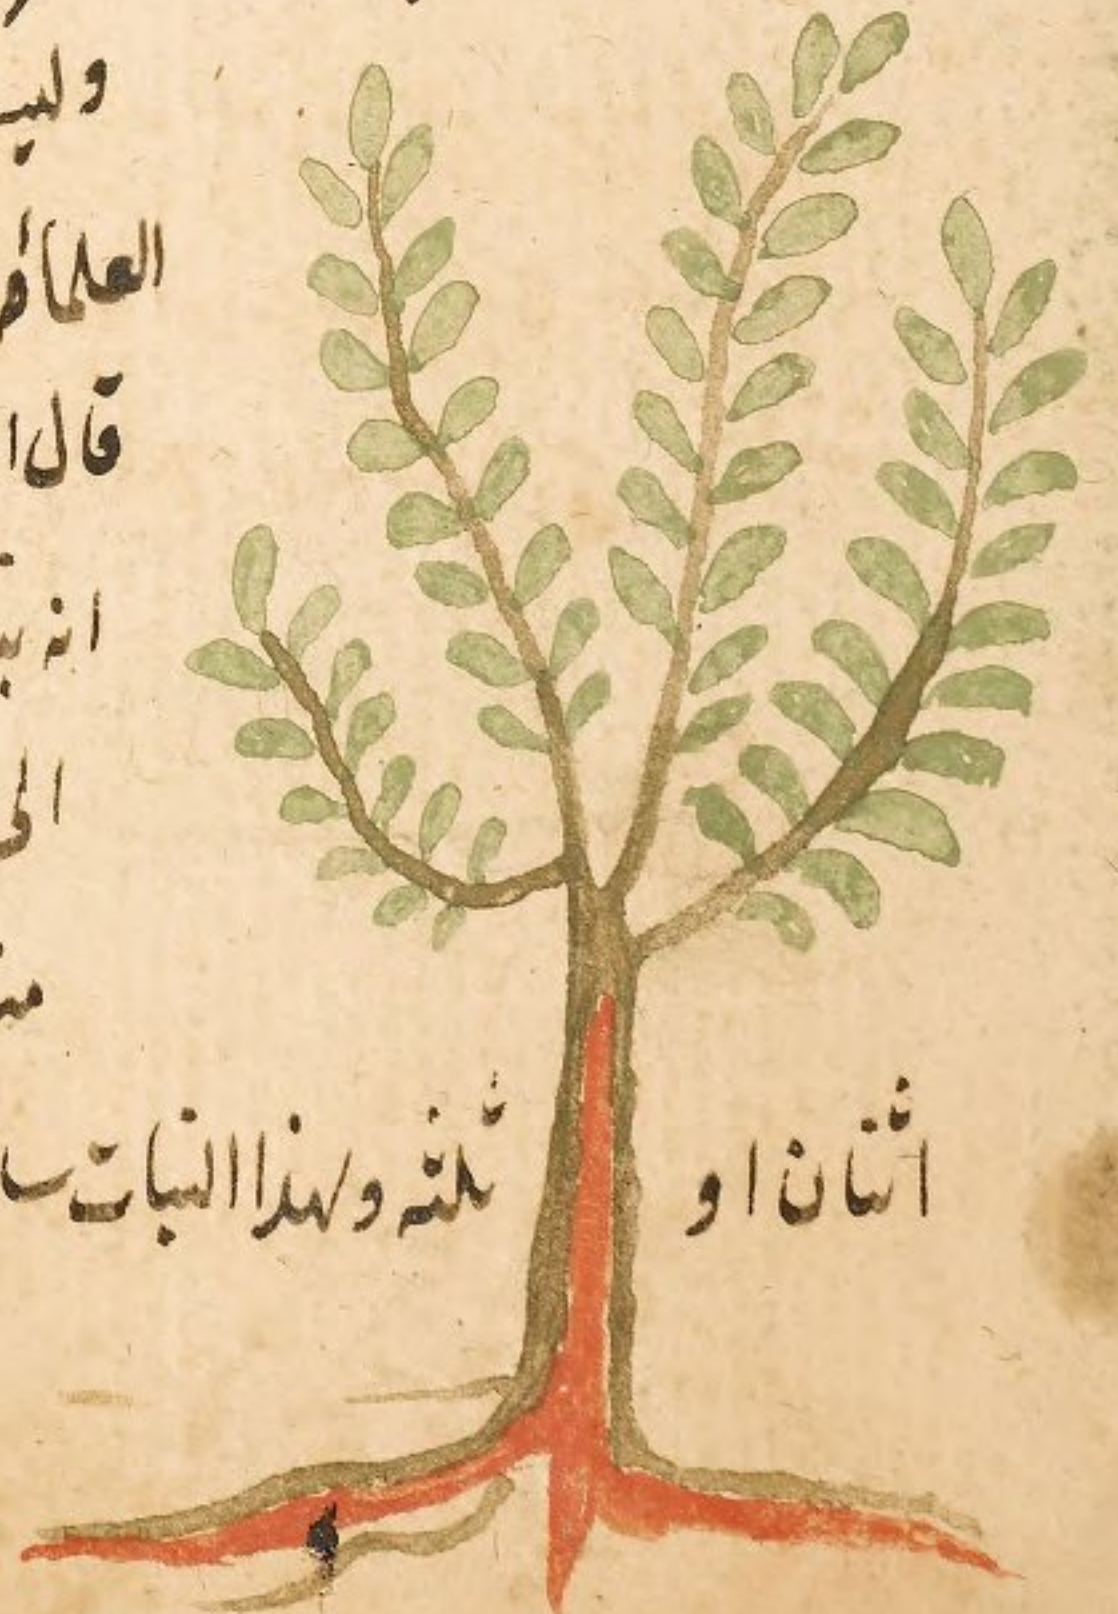 وليـ
العلما
قال ا
انه
الى
اثنان او ثلثه وهذا النبات سا